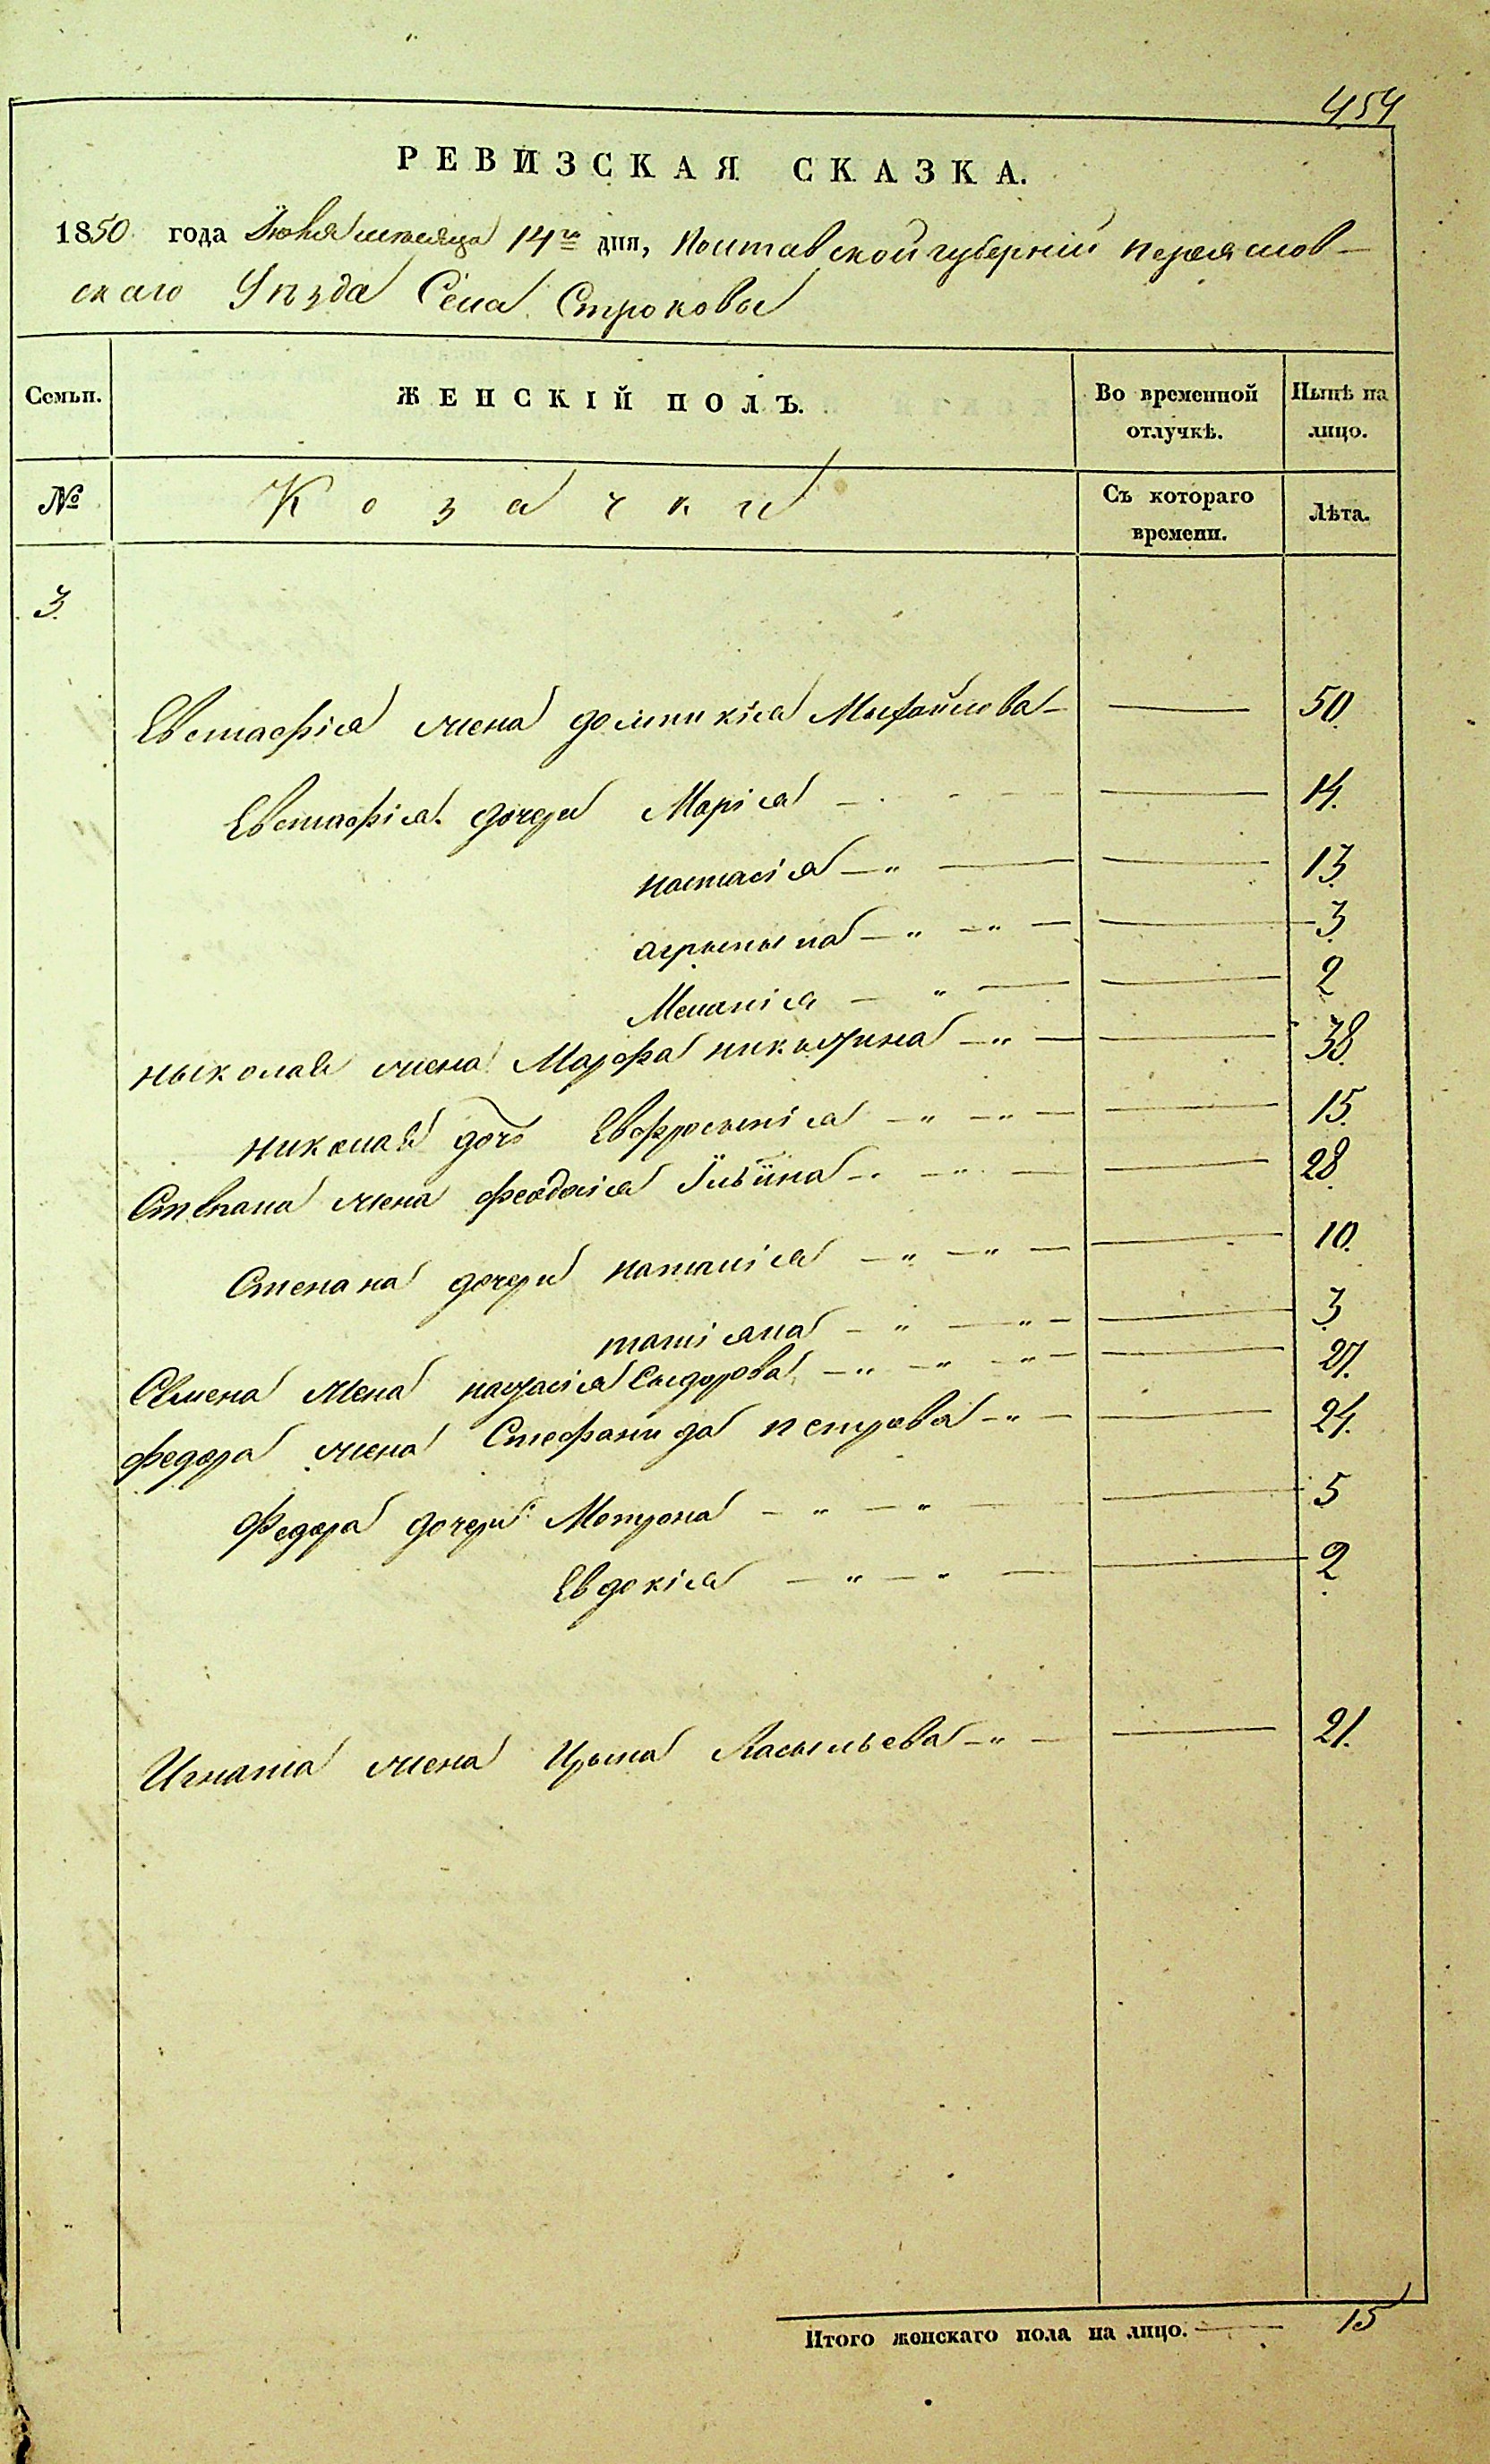 454
РЕВИЗСКАЯ СКАЗКА.
1850 года Июня месяца 14го дня, Полтавской губерніи Переяслов-
скаго Уѣзда Села Строковы
Семьи. ЖЕНСКІЙ ПОЛЪ. Во временной отлучкѣ. Нынѣ на лицо.
№ Козачки Съ котораго времени. Лѣта.
3
Евстафія жена домникія Михайлова 50
Евстафія дочери Марія 14.
настасія 13
агрыпына 3
Меланія 2
ныколая жена Марфа никытина 38
николая дочь Евфросынія 15.
Степана жена феодосія Ильина 28
Степана дочери наталія 10.
татіяна 3
Семена жена настасія Сыдорова 27.
федора жена Стефанида петрова 24.
Федора дочери Мотрона 5
Евдокія 2
Игната жена Ирына Васыльева 21.
Итого женскаго пола на лицо. 15